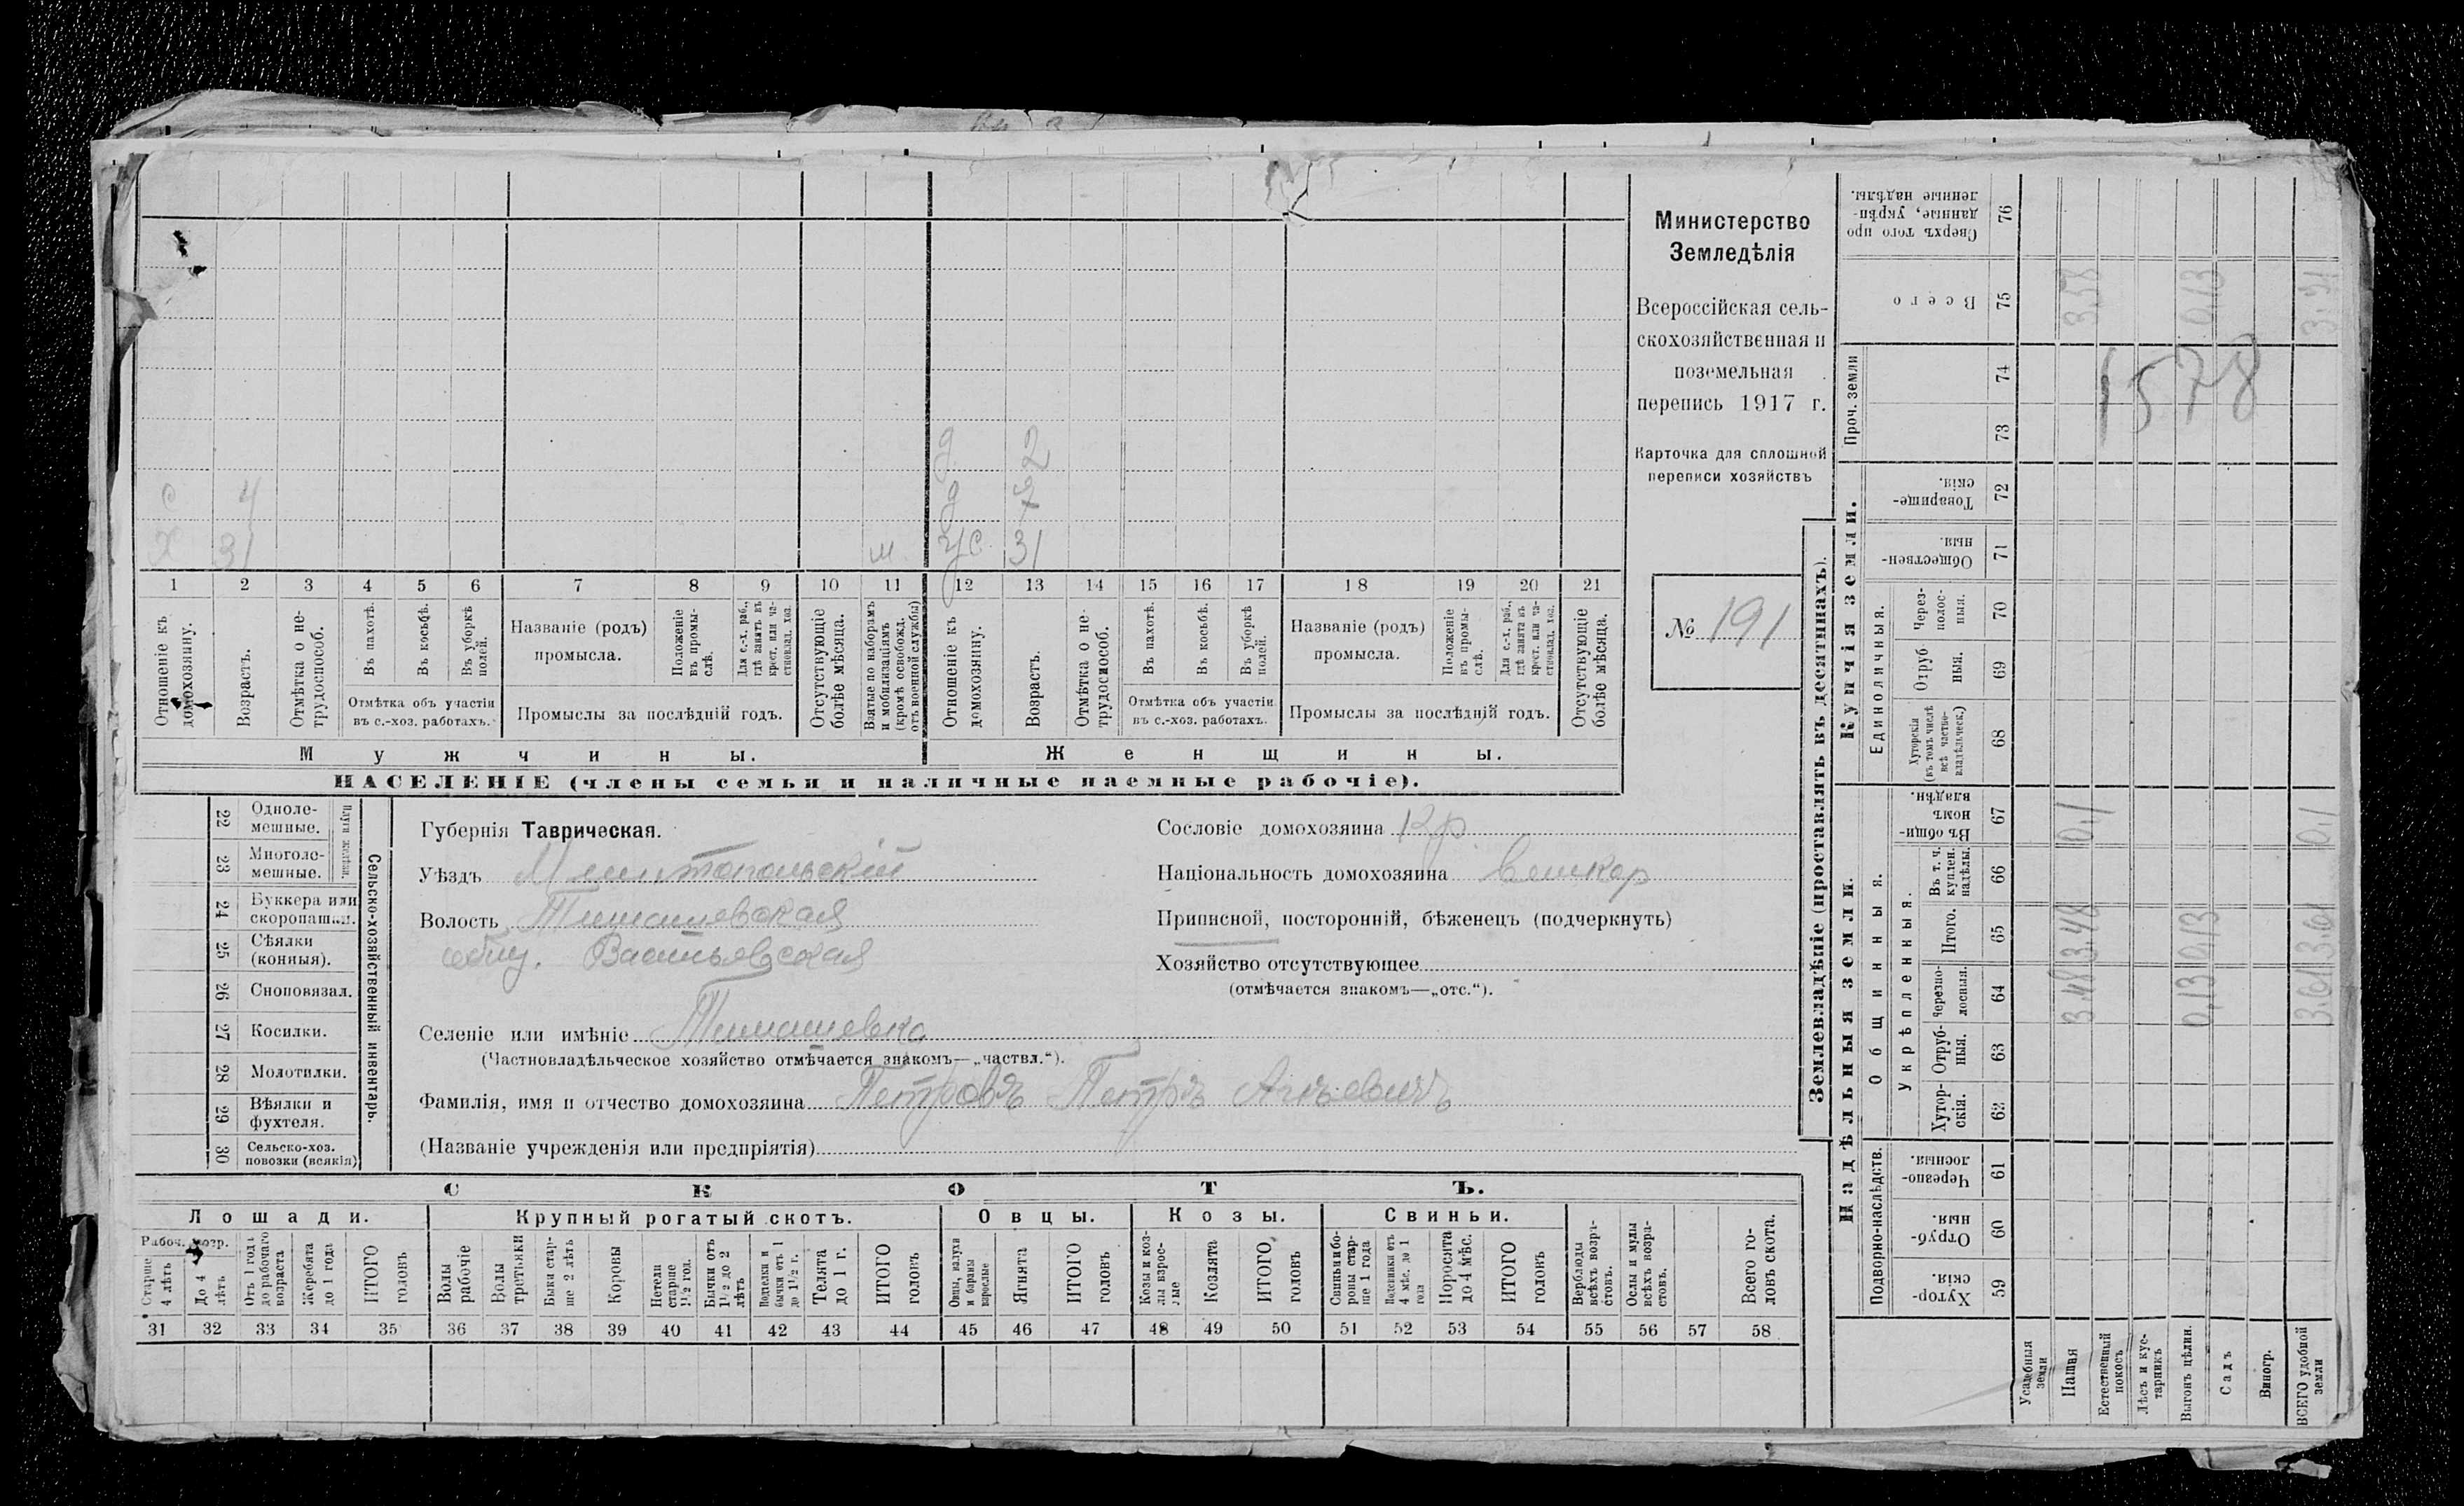 Министерство
Земледѣлія
Всероссійская сель-
скохозяйственная и
поземельная
перепись 1917 г.
Карточка для сплошной
переписи хозяйствъ
№ 191
д 2
с 4 д 7
Х 31 м ж 31
1 2 3 4 5 6 7 8 9 10 11 12 13 14 15 16 17 18 19 20 21
Отношеніе къ домохозяину.
Возрастъ.
Отмѣтка о не-трудоспособ.
Въ пахотѣ.
Въ косьбѣ.
Въ уборкѣ полей.
Отмѣтка объ участіи
въ с.-хоз. работахъ.
Названіе (родъ)
промысла.
Положеніе въ промы-слѣ.
Для с.-х. раб., гдѣ занятъ въ крест. или ча-стновлад. хоз.
Промыслы за послѣдній годъ.
Отсутствующіе болѣе мѣсяца.
Взятые по наборамъ и мобилизаціямъ (кромѣ освобожд. отъ военной службы)
Отношеніе къ домохозяину.
Возрастъ.
Отмѣтка о не-трудоспособ.
Въ пахотѣ.
Въ косьбѣ.
Въ уборкѣ полей.
Отмѣтка объ участіи
въ с.-хоз. работахъ.
Названіе (родъ)
промысла.
Положеніе въ промы-слѣ.
Для с.-х. раб., гдѣ занята въ крест. или ча-стновлад. хоз.
Промыслы за послѣдній годъ.
Отсутствующіе болѣе мѣсяца.
Мужчины. Женщины.
НАСЕЛЕНІЕ (члены семьи и наличные наемные рабочіе).
Сельско-хозяйственный инвентарь.
Плуги желѣзн.
22 Одноле-мешные.
23 Многоле-мешные.
24 Буккера или скоропашк.
25 Сѣялки (конныя).
26 Сноповязал.
27 Косилки.
28 Молотилки.
29 Вѣялки и фухтеля.
30 Сельско-хоз. повозки (всякія)
Губернія Таврическая.
Уѣздъ Мелитопольскій
Волость Тимашевская
общ. Васильевская
Селеніе или имѣніе Тимашевка
(Частновладѣльческое хозяйство отмѣчается знакомъ—„частвл.“).
Фамилія, имя и отчество домохозяина Петровъ Петръ
(Названіе учрежденія или предпріятія)
Сословіе домохозяина Кр.
Національность домохозяина великор
Приписной, посторонній, бѣженецъ (подчеркнуть)
Хозяйство отсутствующее
(отмѣчается знакомъ—„отс.“).
СКОТЪ.
Лошади. Крупный рогатый скотъ. Овцы. Козы. Свиньи.
Рабоч. возр.
Старше 4 лѣтъ
До 4 лѣтъ
Отъ 1 года до рабочаго возраста
Жеребята до 1 года
ИТОГО головъ
Волы рабочіе
Волы третьяки
Быки стар-ше 2 лѣтъ
Коровы
Нетели старше 1½ год.
Бычки отъ 1½ до 2 лѣтъ
Подтелки и бычки отъ 1 до 1½ г.
Телята до 1 г.
ИТОГО головъ
Овцы, валухи и бараны взрослые
Ягнята
ИТОГО головъ
Козы и коз-лы взрос-лые
Козлята
ИТОГО головъ
Свиньи и бо-ровы стар-ше 1 года
Подсвинки отъ 4 мѣс. до 1 года
Поросята до 4 мѣс.
ИТОГО головъ
Верблюды всѣхъ возр-стовъ.
Ослы и мулы всѣхъ возра-стовъ.
Всего го-ловъ скота.
31 32 33 34 35 36 37 38 39 40 41 42 43 44 45 46 47 48 49 50 51 52 53 54 55 56 57 58
Землевладѣніе (проставлять въ десятинахъ).
Надѣльныя земли. Купчія земли. Проч. земли
Подворно-наслѣдств.
Общинныя.
Укрѣпленныя.
Единоличныя.
Хутор-скія. 59
Отруб-ныя. 60
Черезпо-лосныя. 61
Хутор-скія. 62
Отруб-ныя. 63
Черезпо-лосныя. 64
Итого. 65
Въ т. ч. куплен. надѣлы. 66
Въ общин-номъ владѣн. 67
Хуторскія (въ томъ числѣ всѣ частно-владѣльческ.) 68
Отруб ныя. 69
Через-полос-ныя. 70
Обществен-ныя. 71
Товарище-скія. 72
73
74
Всего 75
Сверхъ того про данные, укрѣп-ленные надѣлы. 76
Усадебныя земли
Пашня 3.48 3.48 0,1 3.58
Естественный покосъ
Лѣсъ и кус-тарникъ
Выгонъ цѣлин. 0,13 0,13 0,13
Садъ
Виногр.
ВСЕГО удобной земли 3.61 3.61 0,1 3.71
1578